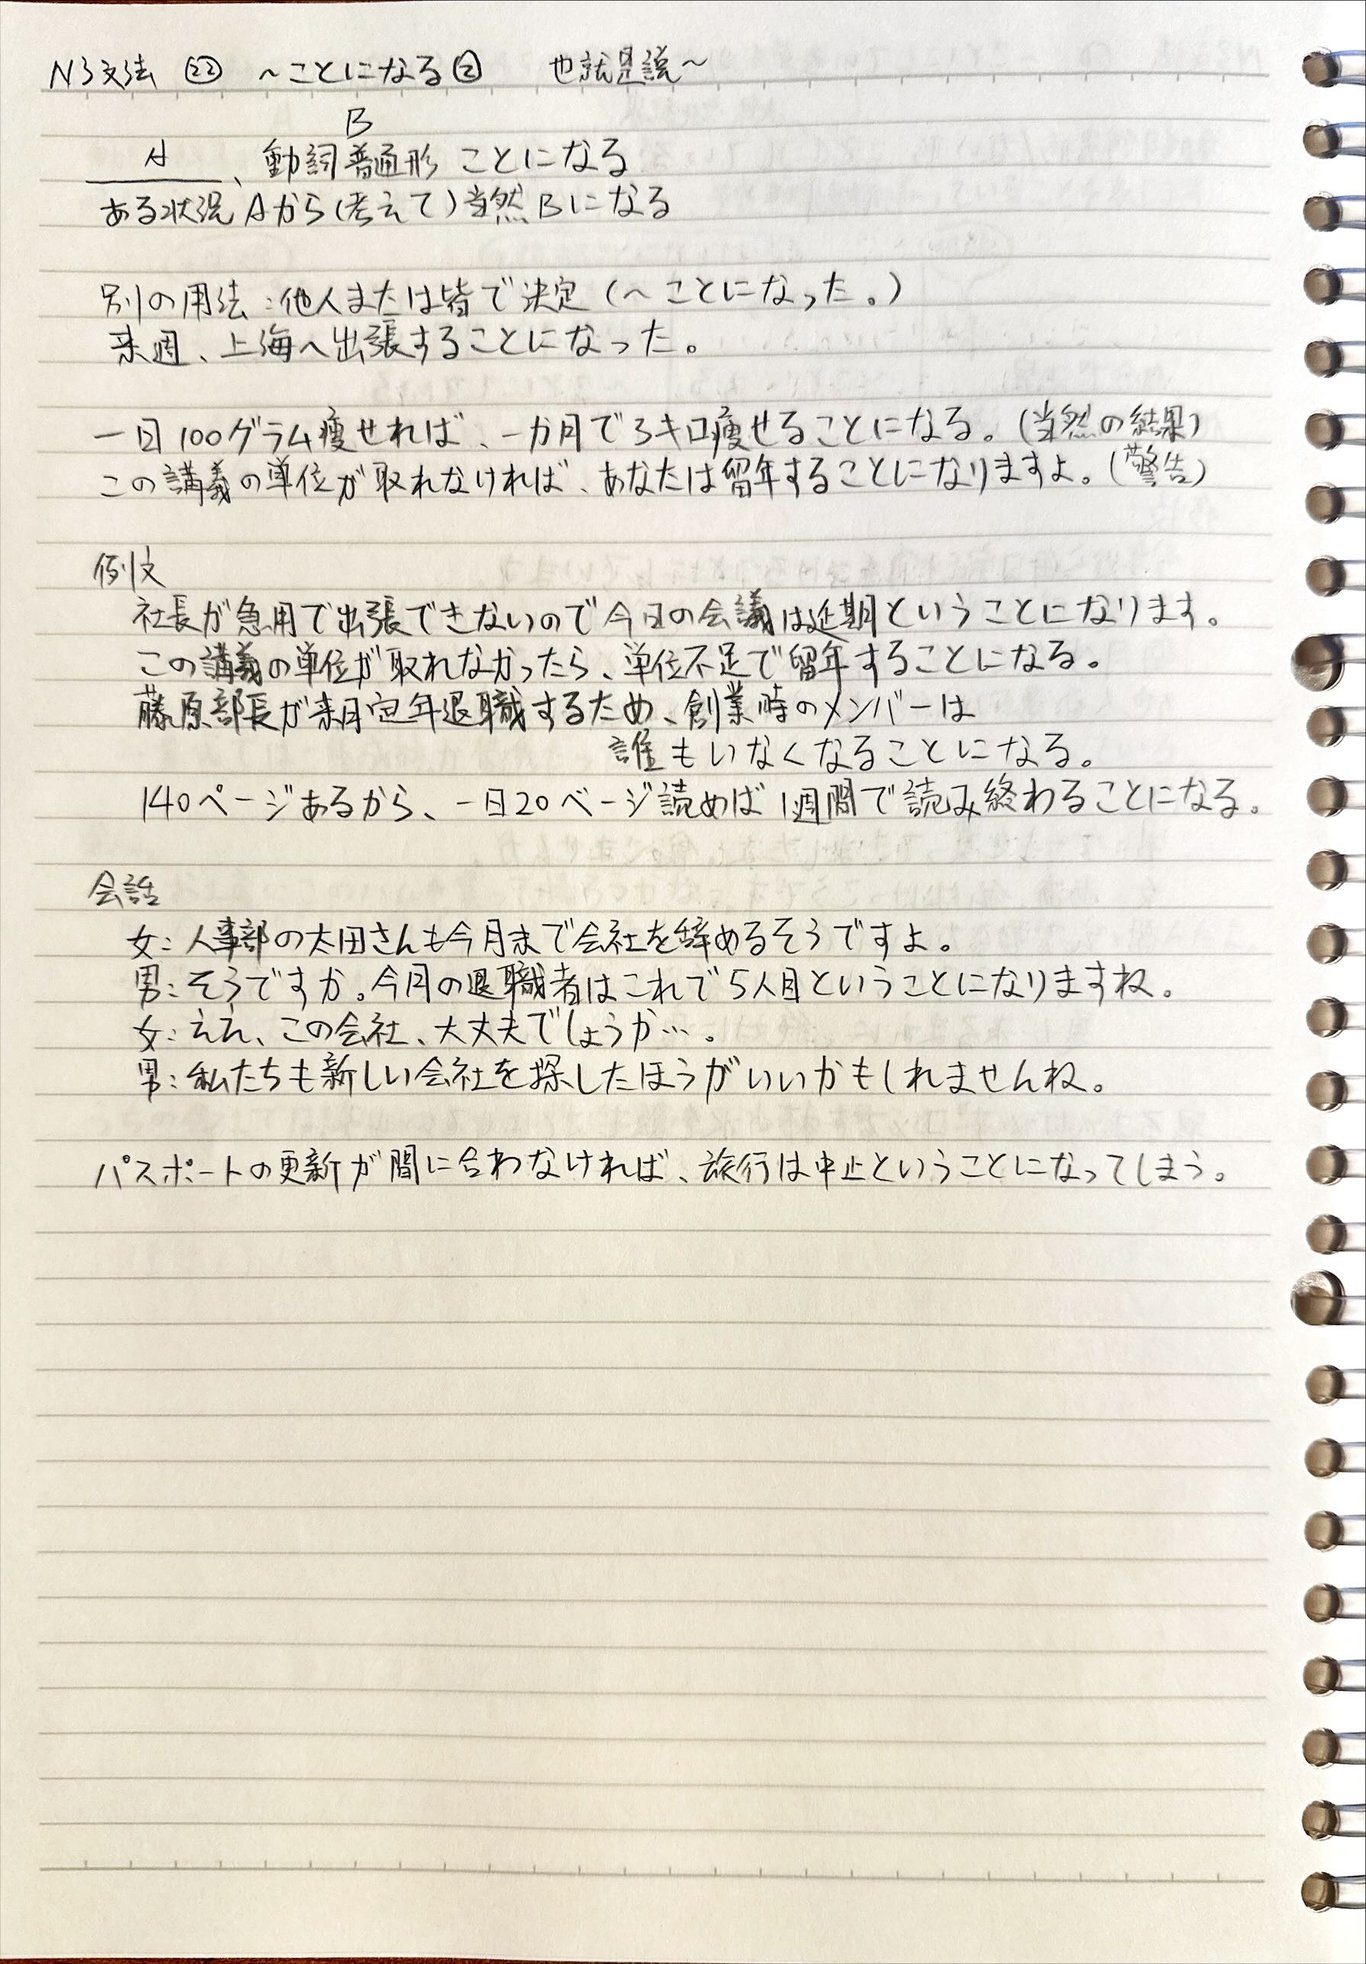 N3文法 ㉒ ～ことになる② 也就是説～
B
A、動詞普通形 ことになる
ある状況Aから(考えて)当然Bになる
別の用法：他人または皆で決定(～ことになった。)
来週、上海へ出張することになった。
一日100グラム痩せれば、一か月で3キロ痩せることになる。(当然の結果)
この講義の単位が取れなければ、あなたは留年することになりますよ。(警告)
例文
社長が急用で出張できないので今日の会議は延期ということになります。
この講義の単位が取れなかったら、単位不足で留年することになる。
藤原部長が来月定年退職するため、創業時のメンバーは
誰もいなくなることになる。
140ページあるから、一日20ページ読めば1週間で読み終わることになる。
会話
女：人事部の太田さんも今月まで会社を辞めるそうですよ。
男：そうですか。今月の退職者はこれで5人目ということになりますね。
女：ええ、この会社、大丈夫でしょうか…。
男：私たちも新しい会社を探したほうがいいかもしれませんね。
パスポートの更新が間に合わなければ、旅行は中止ということになってしまう。